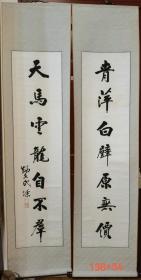 青萍白璧原無價
天馬雲龍自不羣
138*34